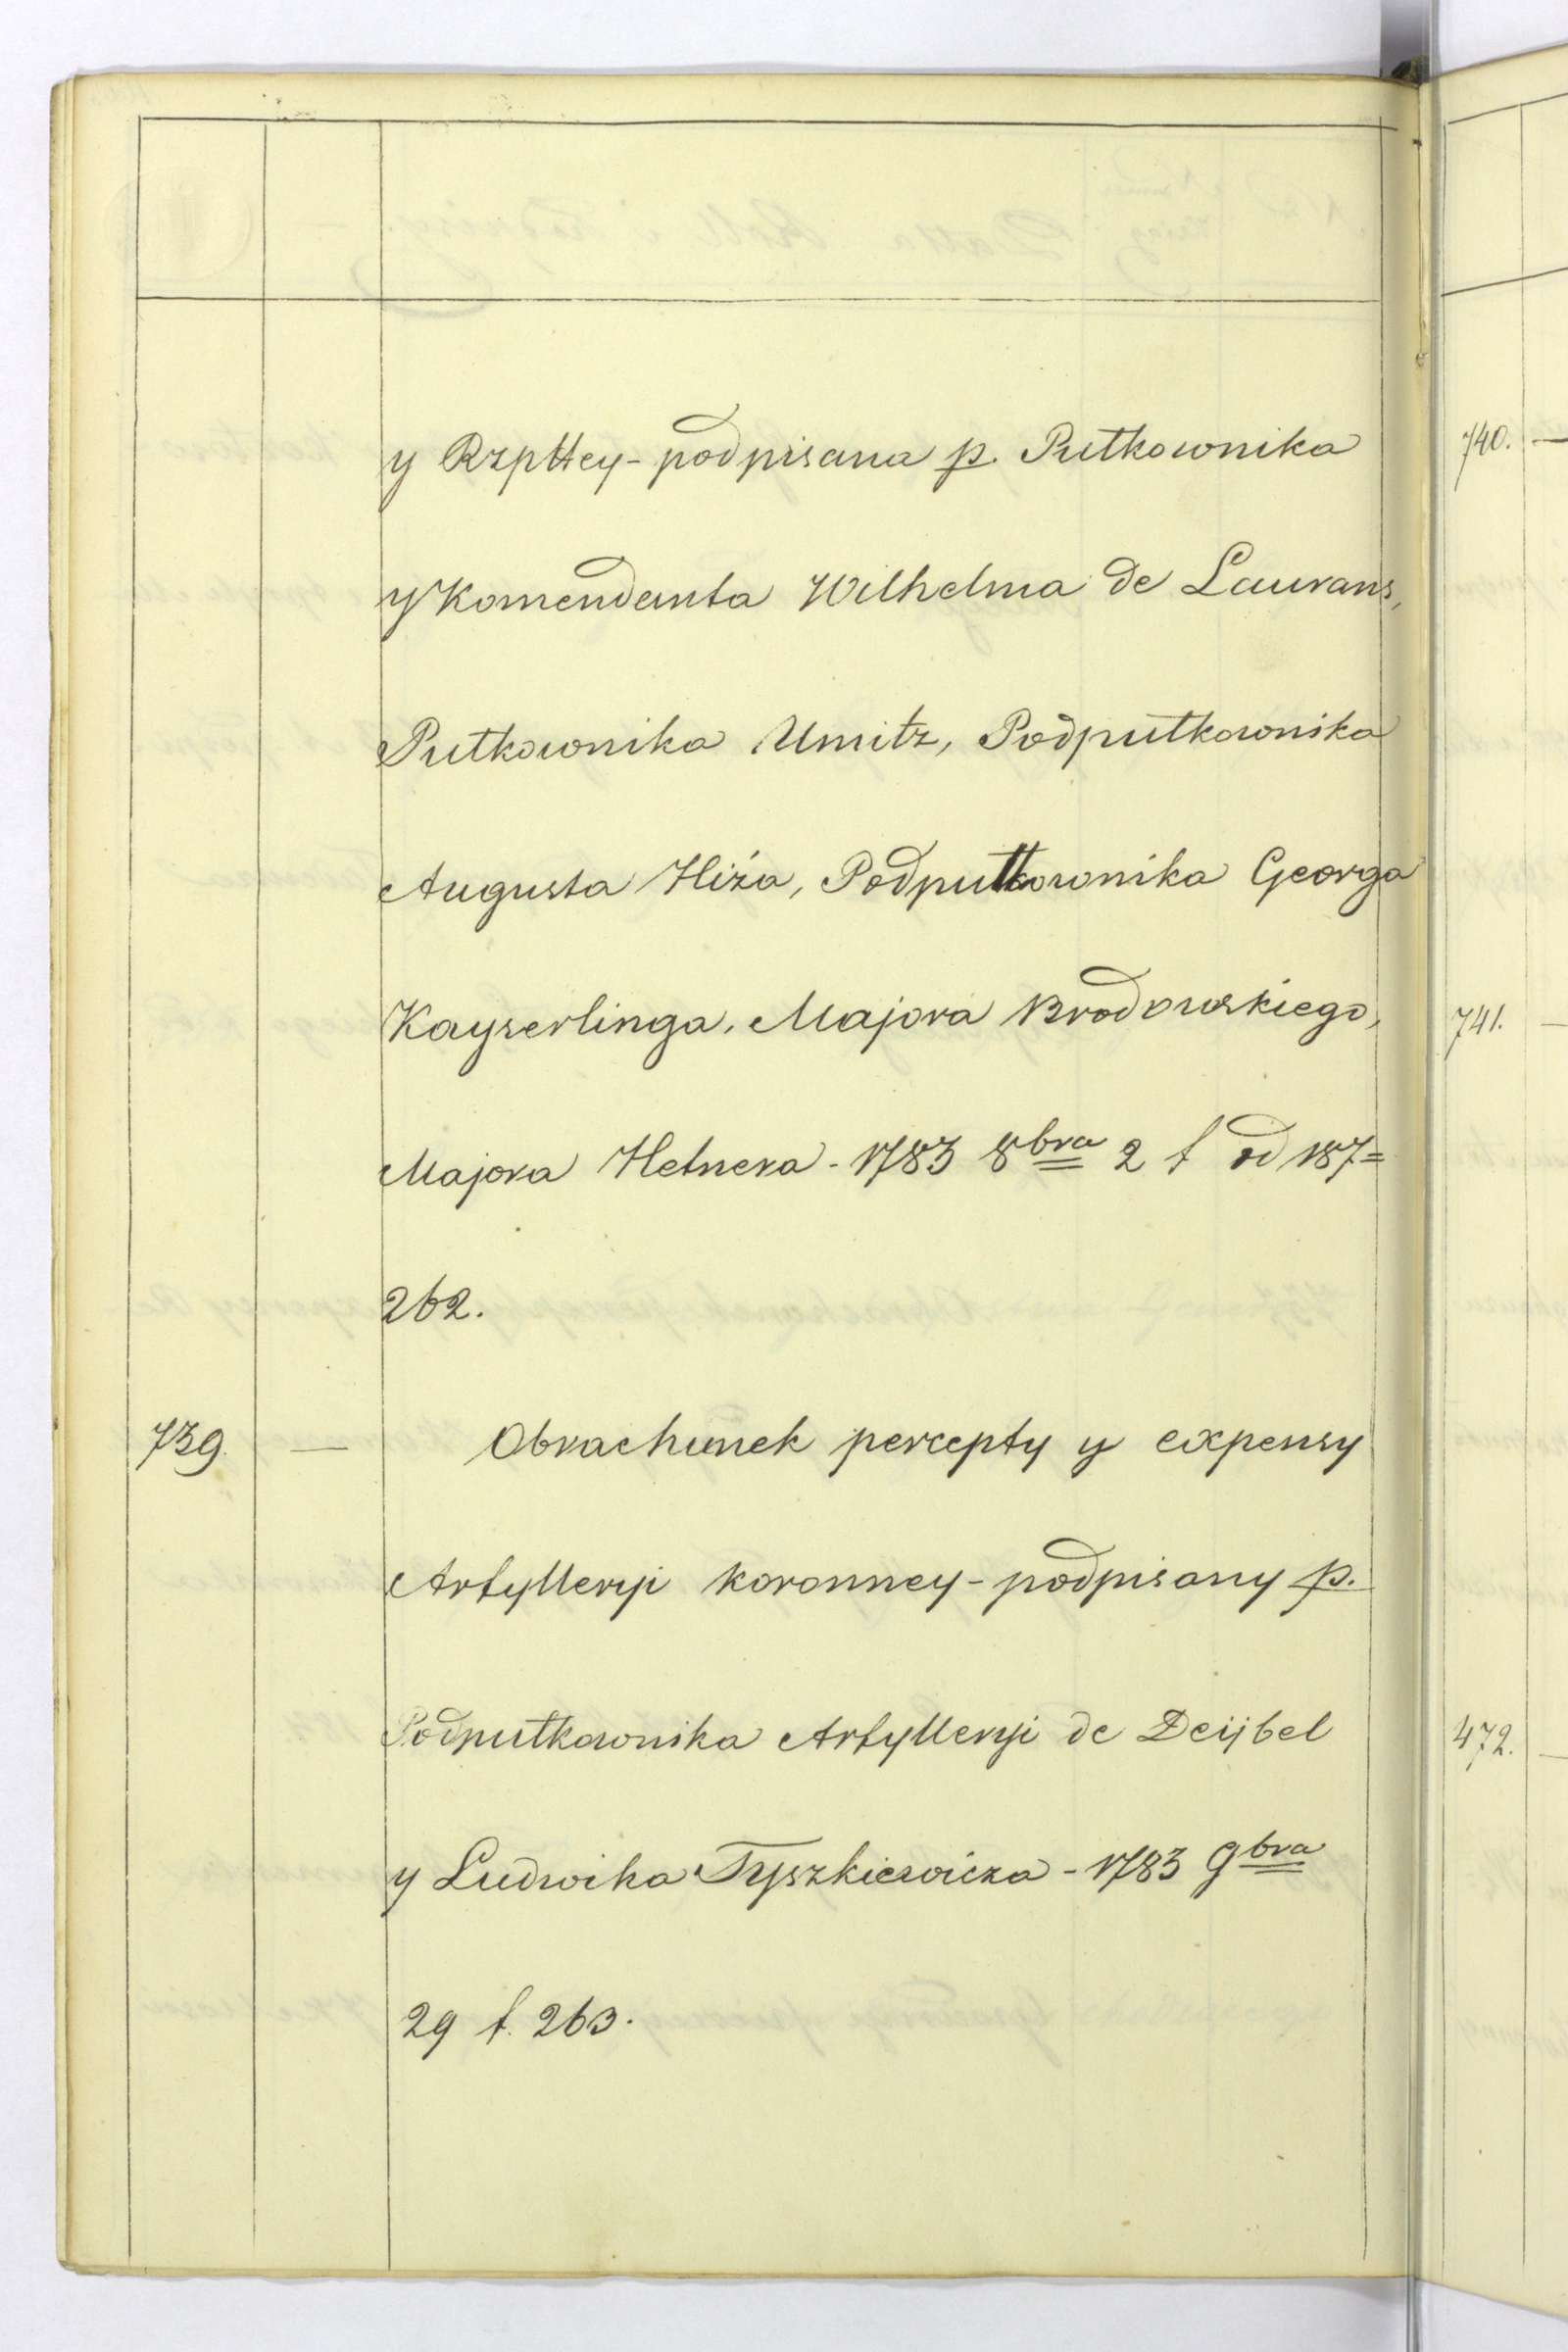 y Rzpttey - podpisana p. Pułkownika
y Komendanta Wilhelma de Laurans,
Pułkownika Umitz, Podpułkownika
Augusta Hiża, Podpułkownika Georga
Kayserlinga, Majora Brodowskiego,
Majora Hetnera - 1783 8bra 2 f od 187=
262.
739. — Obrachunek percepty y expensy
Artylleryi koronney - podpisany p.
Podpułkownika Artylleryi de Deijbel
y Ludwika Tyszkiewicza - 1783 9bra
29 f. 263.
740. —
741. —
472. —